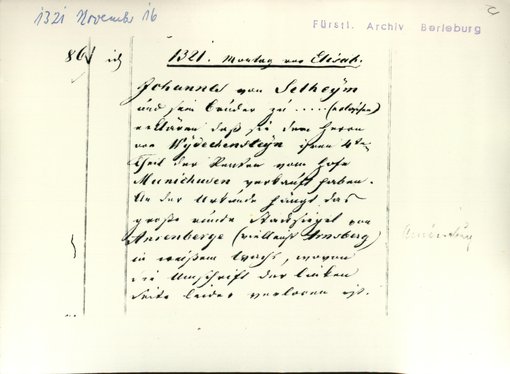 1321 November 16
Fürstl. Archiv Berleburg
86 1321. Montag vor Elisab.
Johannes von Setheym
und sein Bruder zu .....
erklären daß sie dem Herrn
von Wydechensteyn ihren 4ten
Theil der Renten vom Hofe
Munichusen verkauft haben.
An der Urkunde hängt das
große runde Stadtsiegel von
Arsenberge (vielleicht Arnsberg)
in weißem Wachs, wovon
die Umschrift der linken
Seite leider verloren ist.